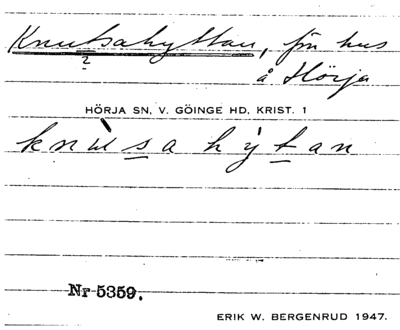 Knutsahyttan, fm hus
2
å Hörja
HÖRJA SN, V. GÖINGE HD, KRIST. 1
knùsa hỳtan
Nr 5359.
ERIK W. BERGENRUD 1947.